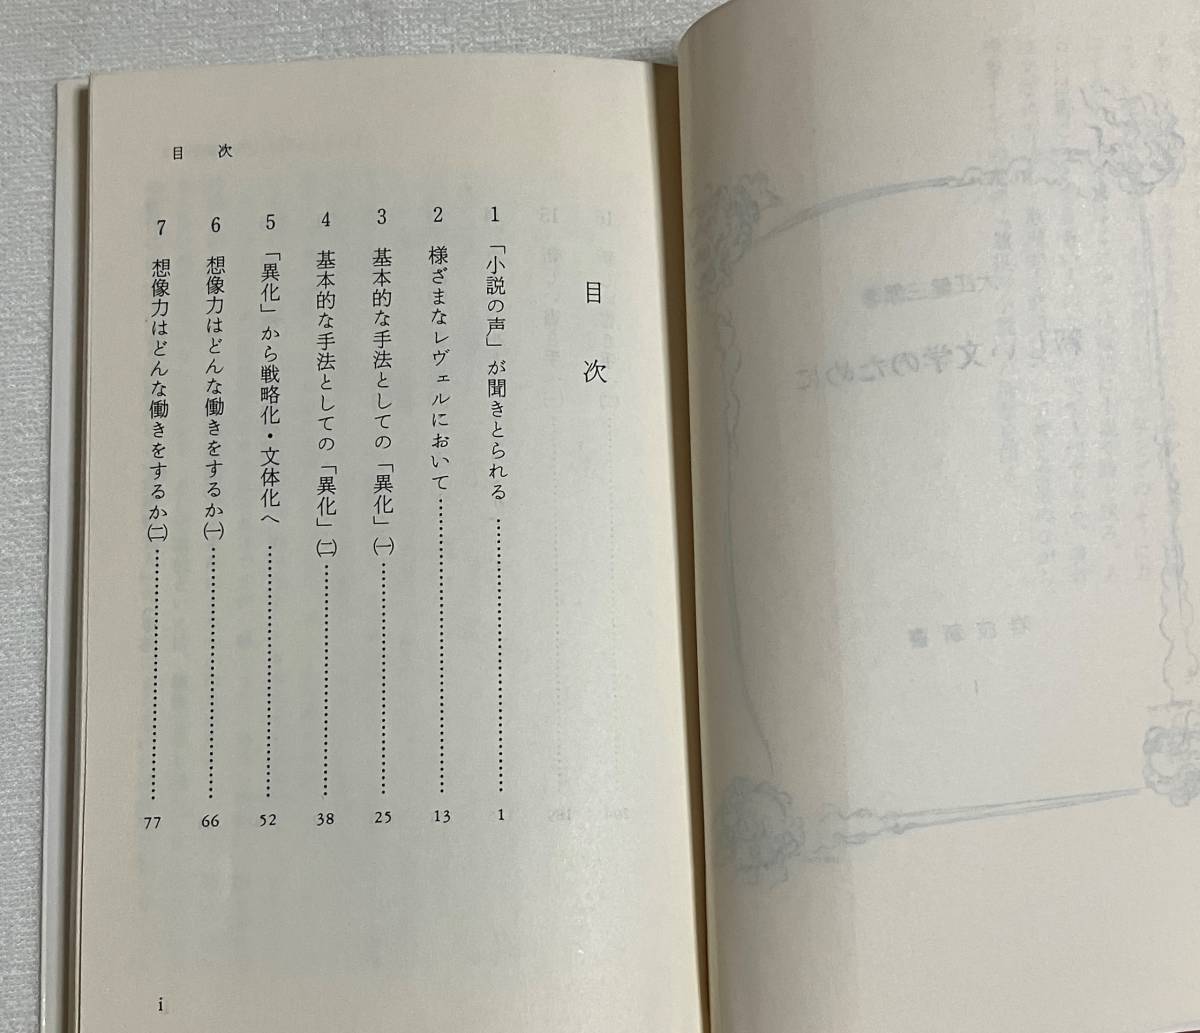 目次
目次
1 「小説の声」が聞きとられる……………………1
2 様ざまなレヴェルにおいて……………………13
3 基本的な手法としての「異化」㈠……………………25
4 基本的な手法としての「異化」㈡……………………38
5 「異化」から戦略化・文体化へ……………………52
6 想像力はどんな働きをするか㈠……………………66
7 想像力はどんな働きをするか㈡……………………77
i